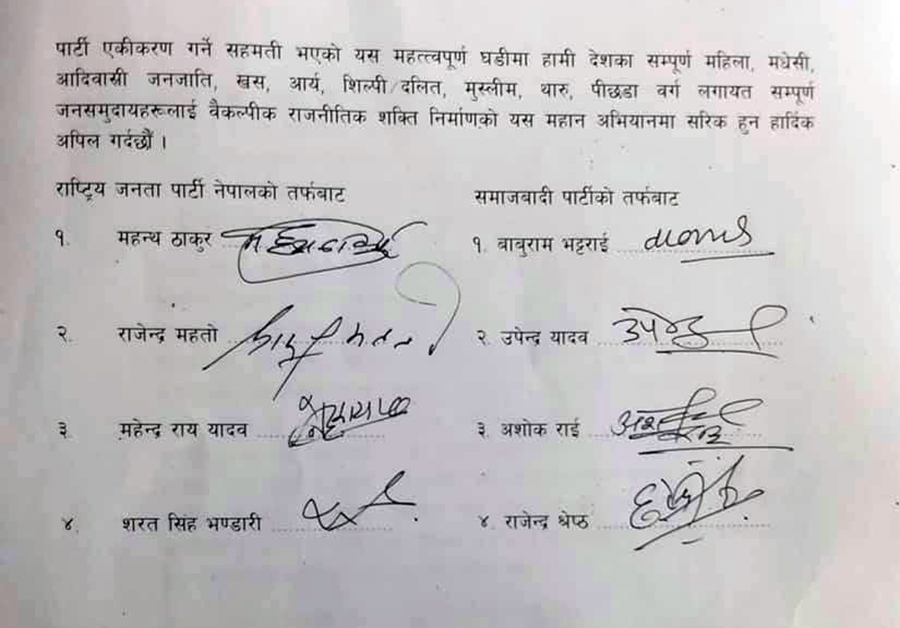 पार्टी एकीकरण गर्ने सहमती भएको यस महत्त्वपूर्ण घडीमा हामी देशका सम्पूर्ण महिला, मधेसी,
आदिवासी जनजाति, खस, आर्य, शिल्पी/दलित, मुस्लीम, थारु, पीछडा वर्ग लगायत सम्पूर्ण
जनसमुदायहरूलाई वैकल्पीक राजनीतिक शक्ति निर्माणको यस महान अभियानमा सरिक हुन हार्दिक
अपिल गर्दछौं ।
राष्ट्रिय जनता पार्टी नेपालको तर्फबाट
समाजबादी पार्टीको तर्फबाट
१. महन्थ ठाकुर
१. बाबुराम भट्टराई
२. राजेन्द्र महतो
२. उपेन्द्र यादव
३ महेन्द्र राय यादव
३. अशोक राई
४. शरत सिंह भण्डारी
४ राजेन्द्र श्रेष्ठ